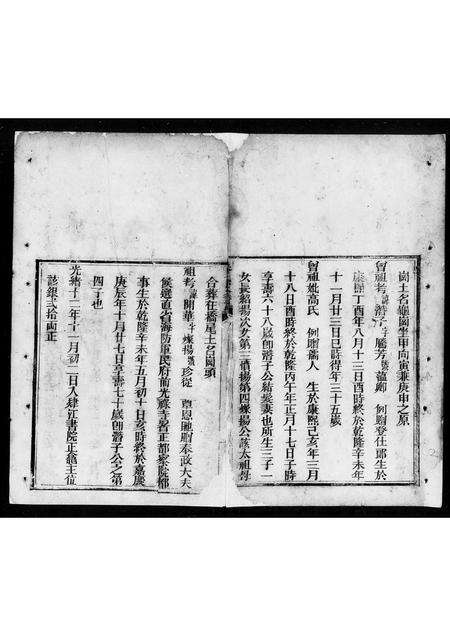 崗土名龜岡坐甲向寅兼庚申之原
曾祖考諱潛子字騰芳號蘊卿 例贈登仕郎生於
康熙丁酉年八月十三日酉時終於乾隆辛未年
十一月廿三日巳時得年三十五歲
曾祖妣高氏 例贈孺人 生於康熙己亥年三月
十八日酉時終於乾隆丙午年正月十七日子時
享壽六十八歲即潛子公結髮妻也所生三子一
女長紹揚次 第三 揚第四燦揚公該太祖母
合葬在橋尾土名 頭
祖考諱開華字燦揚號珍從 覃恩 贈奉政大夫
候選道 海防軍民府前光祿寺署正都察院都
事生於乾隆辛未年五月初十日亥時終於嘉慶
庚辰年十月廿七日享壽七十歲即潛子公之第
四子也
光緒十二年十一月初二日入肄江書院正龕主位
該銀弍拾両正